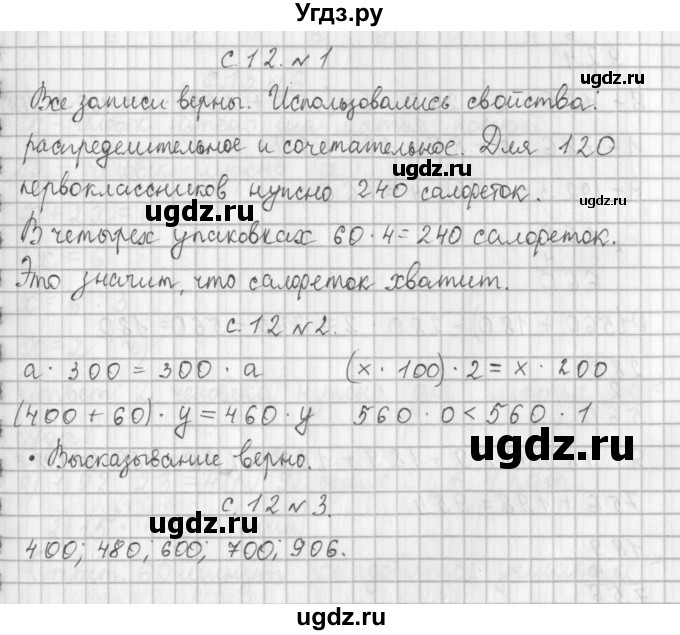 Угдз.ру
с.12. №1
ugdz.ru
Все записи верны. Использовались свойства:
распределительное и сочетательное. Для 120
ugdz.ru
ugdz.ru
первоклассников нужно 240 салфеток.
ugdz.ru
ugdz.ru
В четырех упаковках 60·4=240 салфеток.
Это значит, что салфеток хватит.
ugdz.ru
с.12 №2.
a · 300 = 300 · a (x · 100) · 2 = x · 200
ugdz.ru
(400 + 60) · y = 460 · y 560 · 0 < 560 · 1
ugdz.ru
• Высказывание верно.
ugdz.ru
с.12 №3.
ugdz.ru
400; 480; 600; 700; 906.
ugdz.ru
ugdz.ru